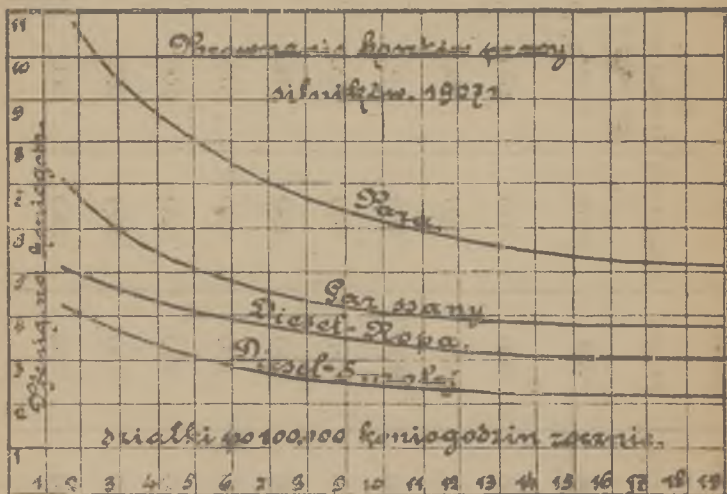 Porównanie kosztów pracy
silników. 1907 r.
Para.
Gaz ssany
Diesel-Ropa.
Diesel-Smołej
działki po 100,000 koniogodzin rocznie.
Pfenig na koniogodz.
11
10
9
8
7
6
5
4
3
2
1
1 2 3 4 5 6 7 8 9 10 11 12 13 14 15 16 17 18 19